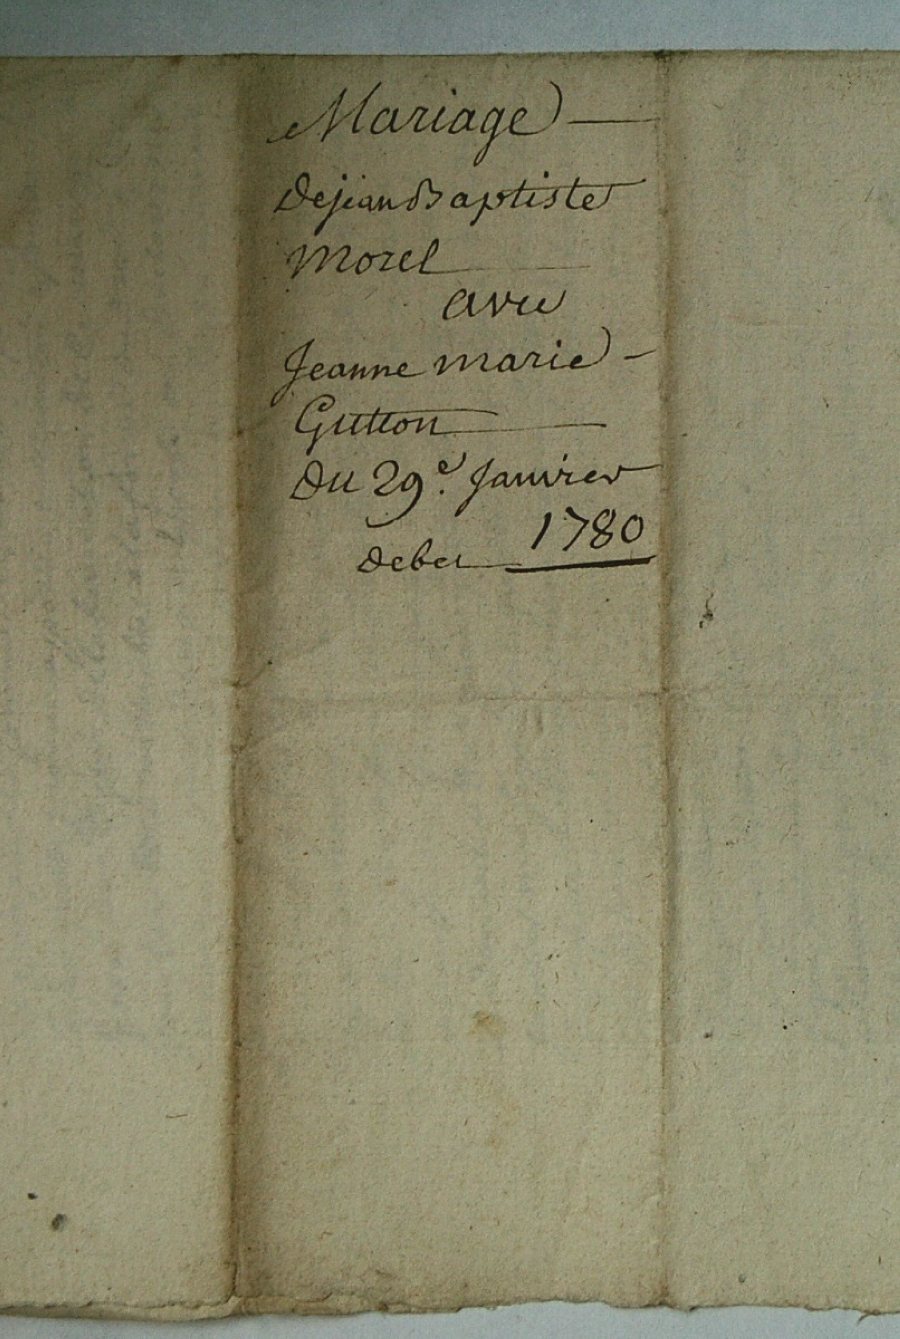 Mariage
de jean Baptiste
Morel
avec
Jeanne marie
Gutton
du 29e. Janvier
1780
debet